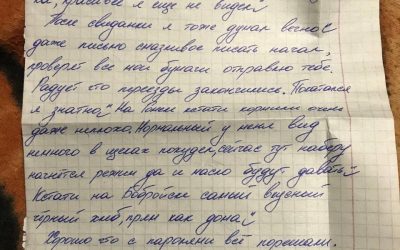 ка, красивее я ещё не видел"
После свидания я тоже думал весной
даже письмо слезливое писать начал,
проверят все мои бумаги отправлю тебе.
Радует что переезды закончились. Покатался
я знатно" На Пензе кстати кормили очень
даже неплохо, Нормальный у меня вид
немного в щеках похудел, сейчас тут наберу
начнётся режим да и масло будут давать"
Кстати на Бобройске самый вкусный
чёрный хлеб, прям как дома"
Хорошо что с паролями всё порешали.